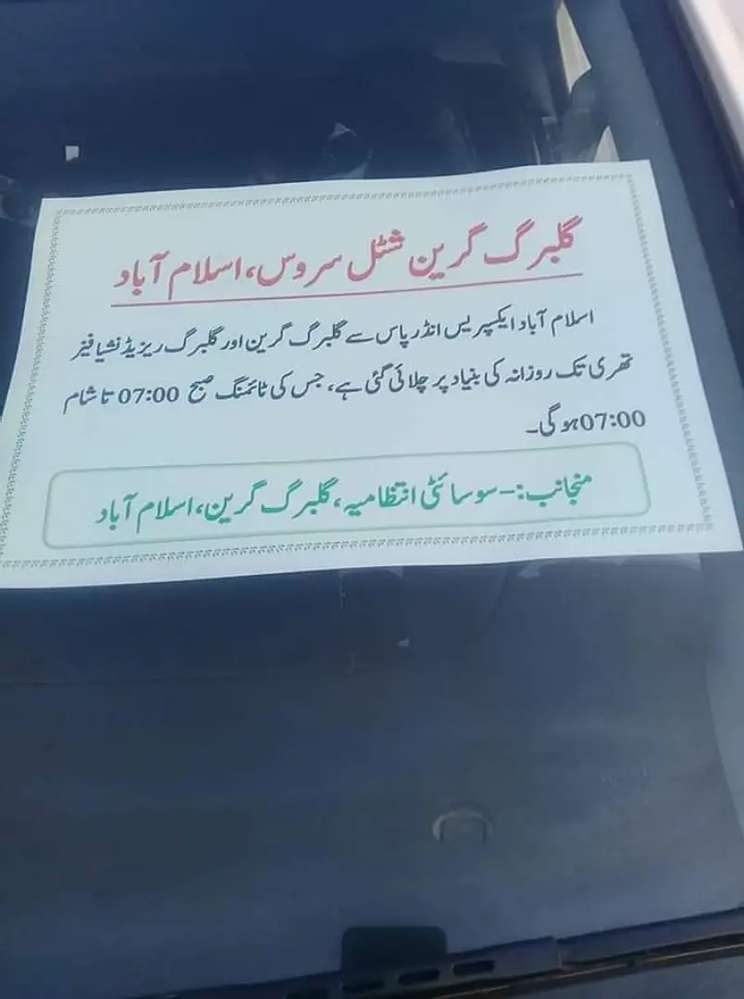 گلبرگ گرین شٹل سروس، اسلام آباد
اسلام آباد ایکسپریس انڈرپاس سے گلبرگ گرین اور گلبرگ ریزیڈنشیا فیز
تھری تک روزانہ کی بنیاد پر چلائی گئی ہے، جس کی ٹائمنگ صبح 07:00 تا شام
07:00 ہوگی۔
منجانب:- سوسائٹی انتظامیہ، گلبرگ گرین، اسلام آباد